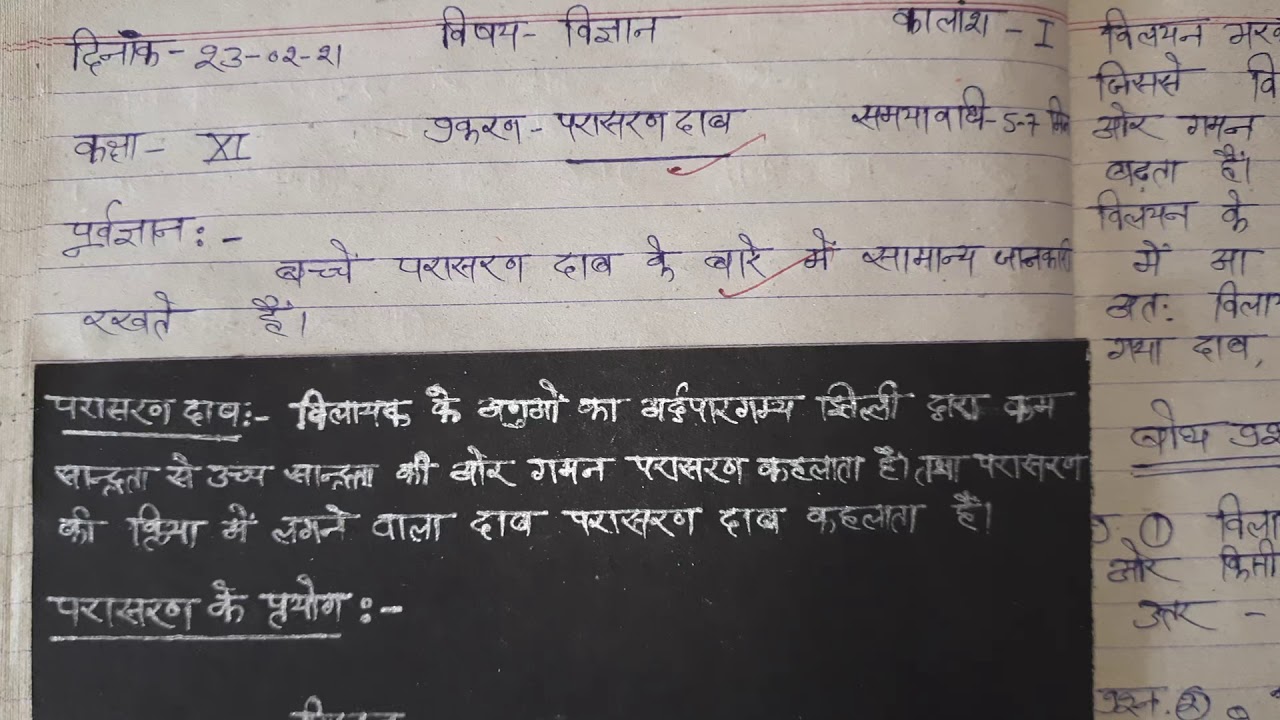 दिनांक- २३-०२-२१
विषय- विज्ञान
कालांश - I
कक्षा- XI
प्रकरण - परासरण दाब
समयावधि-5-7
पूर्वज्ञान:-
बच्चें परासरण दाब के बारे में सामान्य जानकारी
रखते हैं।
परासरण दाब:- विलायक के अणुओं का अर्द्धपारगम्य झिल्ली द्वारा कम
सान्द्रता से उच्च सान्द्रता की ओर गमन परासरण कहलाता है। तथा परासरण
की क्रिया में लगने वाला दाब परासरण दाब कहलाता है।
परासरण के प्रयोग:-
विलयन
जिससे वि
ओर गमन
बढ़ता हैं।
विलयन के
में आ
अतः विला
गया दाब,
बोध प्रश्
① विला
और किसी
उत्तर -